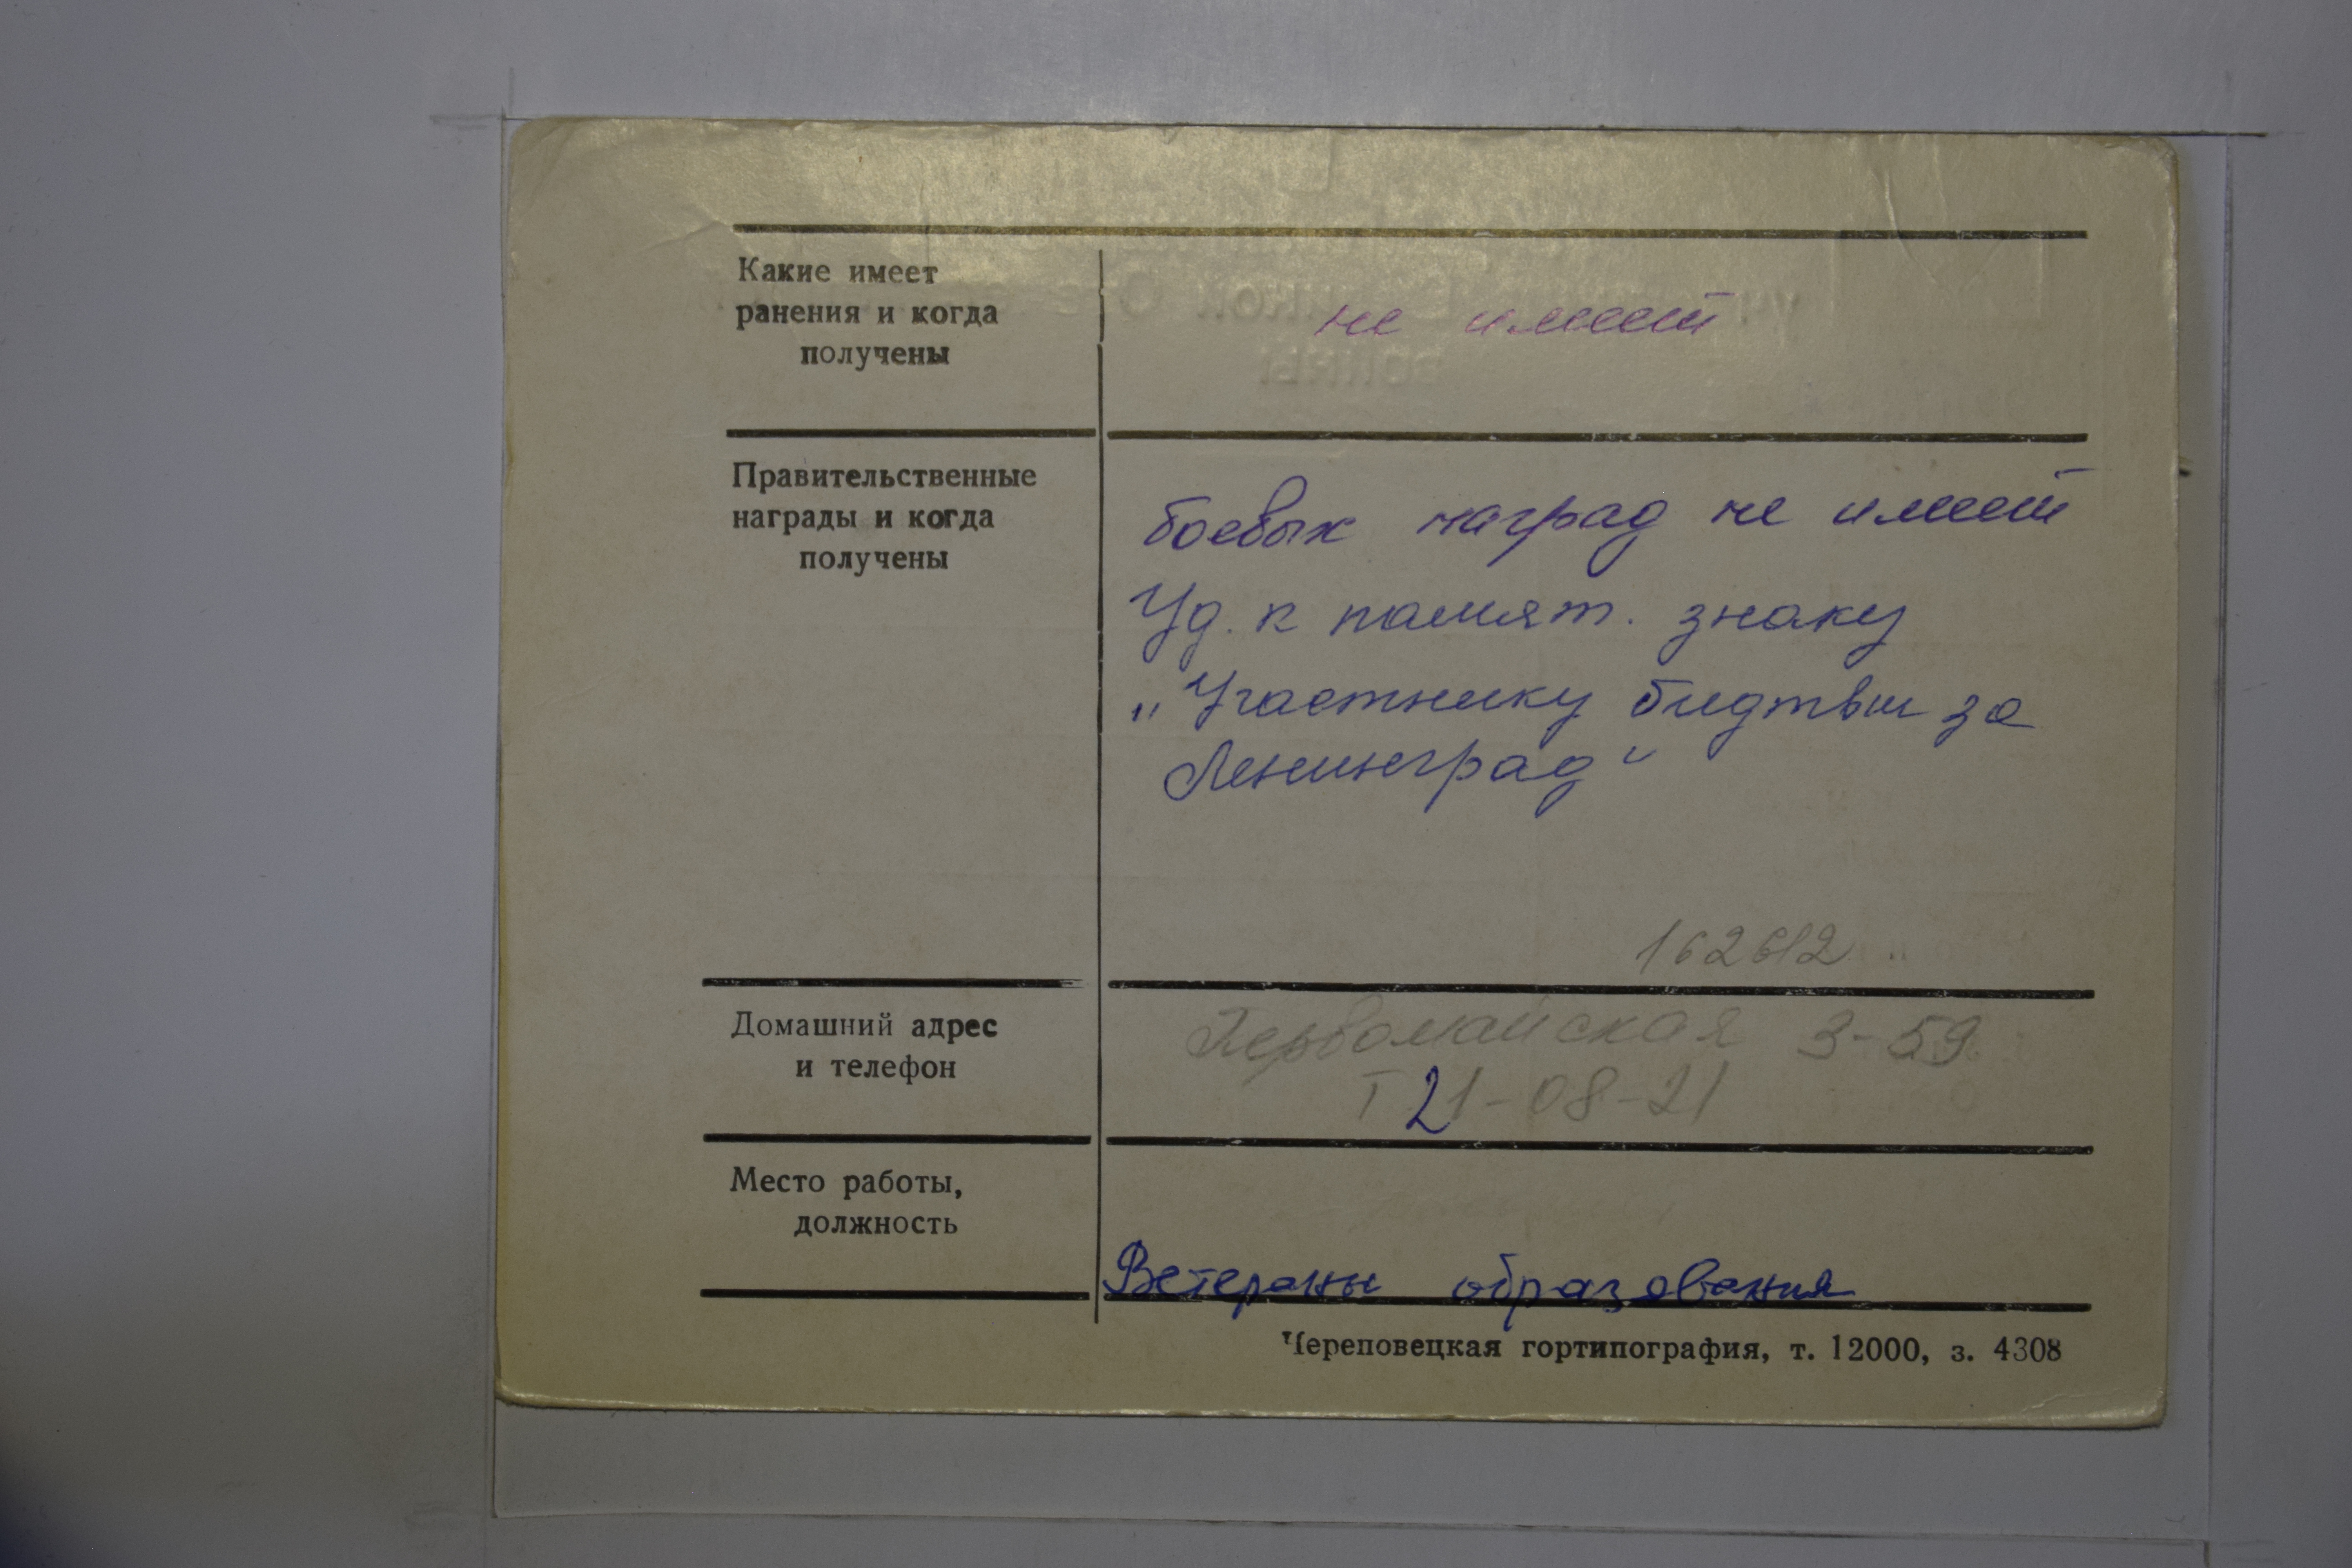 Какие имеет
ранения и когда
получены
не имеет
Правительственные
награды и когда
получены
боевых наград не имеет
Уд. к памят. знаку
„Участнику битвы за
Ленинград“
162612
Домашний адрес
и телефон
Первомайская 3-59
Т 21-08-21
Место работы,
должность
Ветераны образования
Череповецкая гортипография, т. 12000, з. 4308